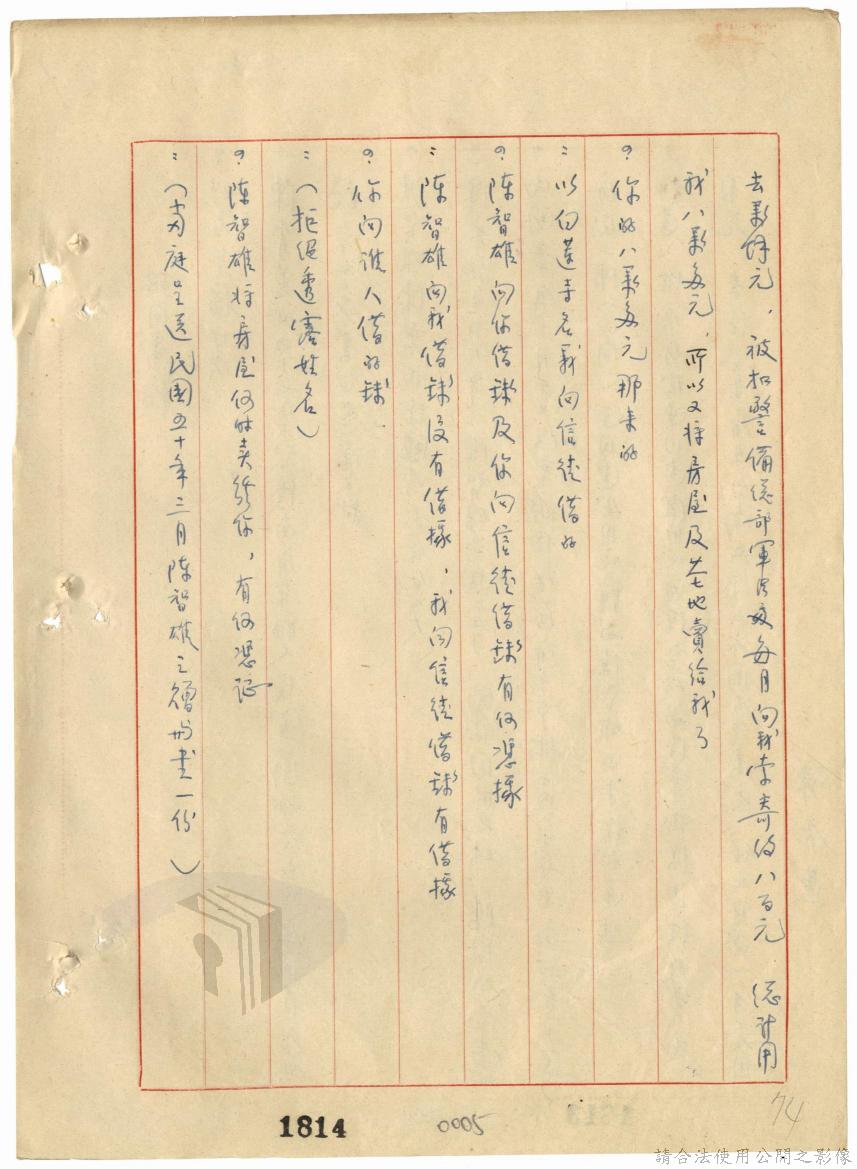 去萬餘元，被扣警備總部軍法處每月向我索壽伙八百元 總計用
我八萬多元，所以又將房屋及基地賣給我了
？你的八萬多元那來的
：以白蓮寺名義向信徒借的
？陳智雄向你借錢及你向信徒借錢有何憑據
：陳智雄向我借錢沒有借據，我向信徒借錢有借據
？你向誰人借的錢
：（拒絕透露姓名）
？陳智雄將房屋何時賣給你，有何憑証
：（当庭呈送民國五十年三月陳智雄之贈與書一份）
1814
0005
74
請合法使用公開之影像